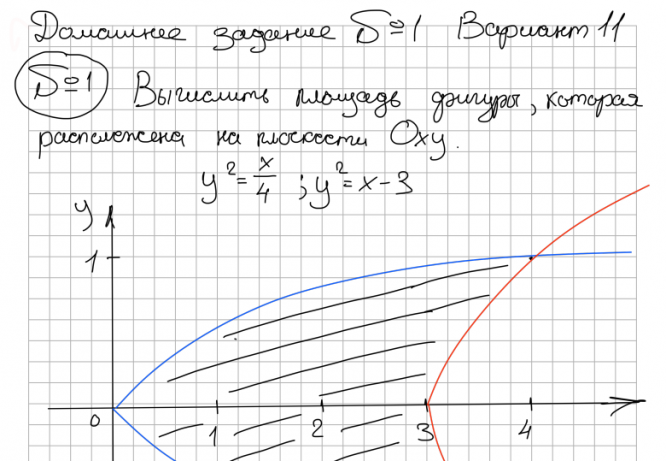 Домашнее задание №1 Вариант 11
№1 Вычислить площадь фигуры, которая
расположена на плоскости Oxy.
y² = x/4 ; y² = x - 3
y
1
0 1 2 3 4